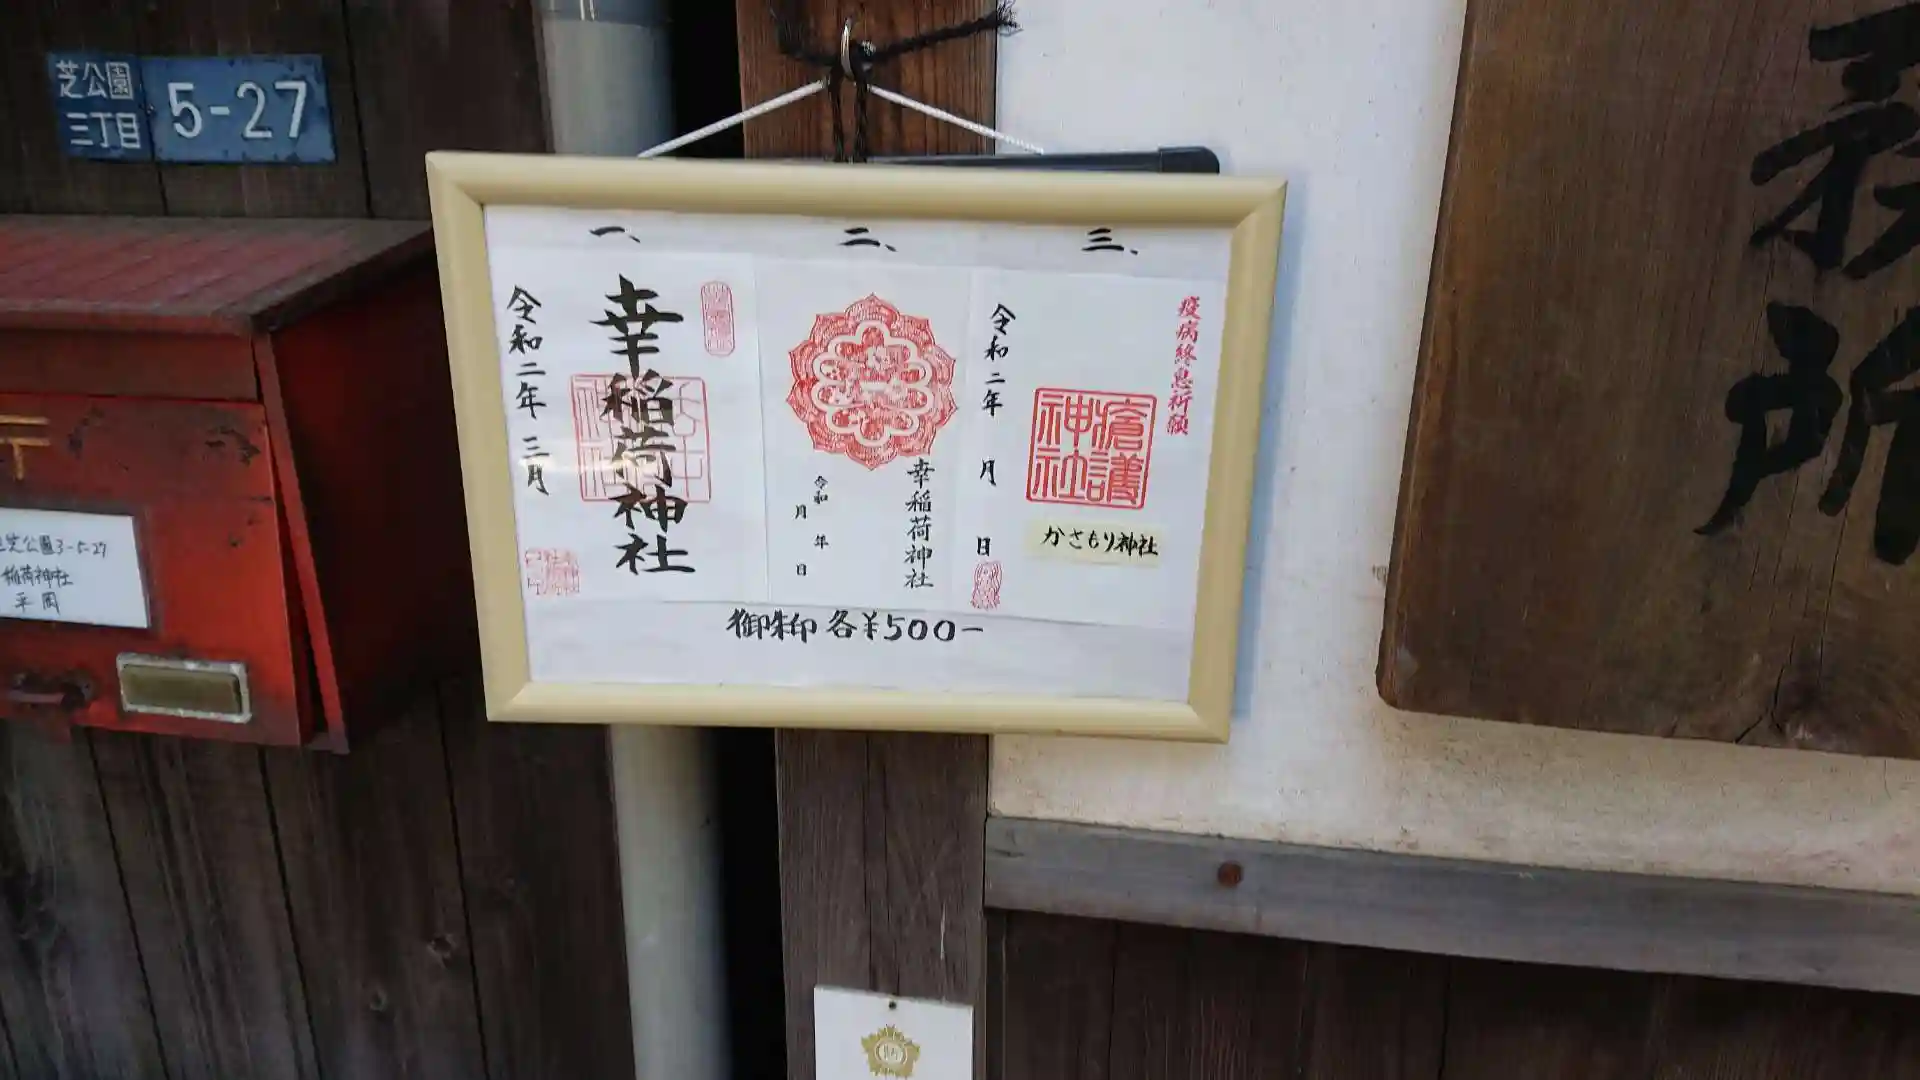 芝公園
三丁目
5-27
〒
芝公園3-5-27
稲荷神社
平岡
一、
幸稲荷神社
令和二年 三月
二、
幸稲荷神社
令和 年
月 日
三、
疫病終息祈願
瘡護
神社
かさもり神社
令和二年 月 日
御朱印 各¥500ー
務所